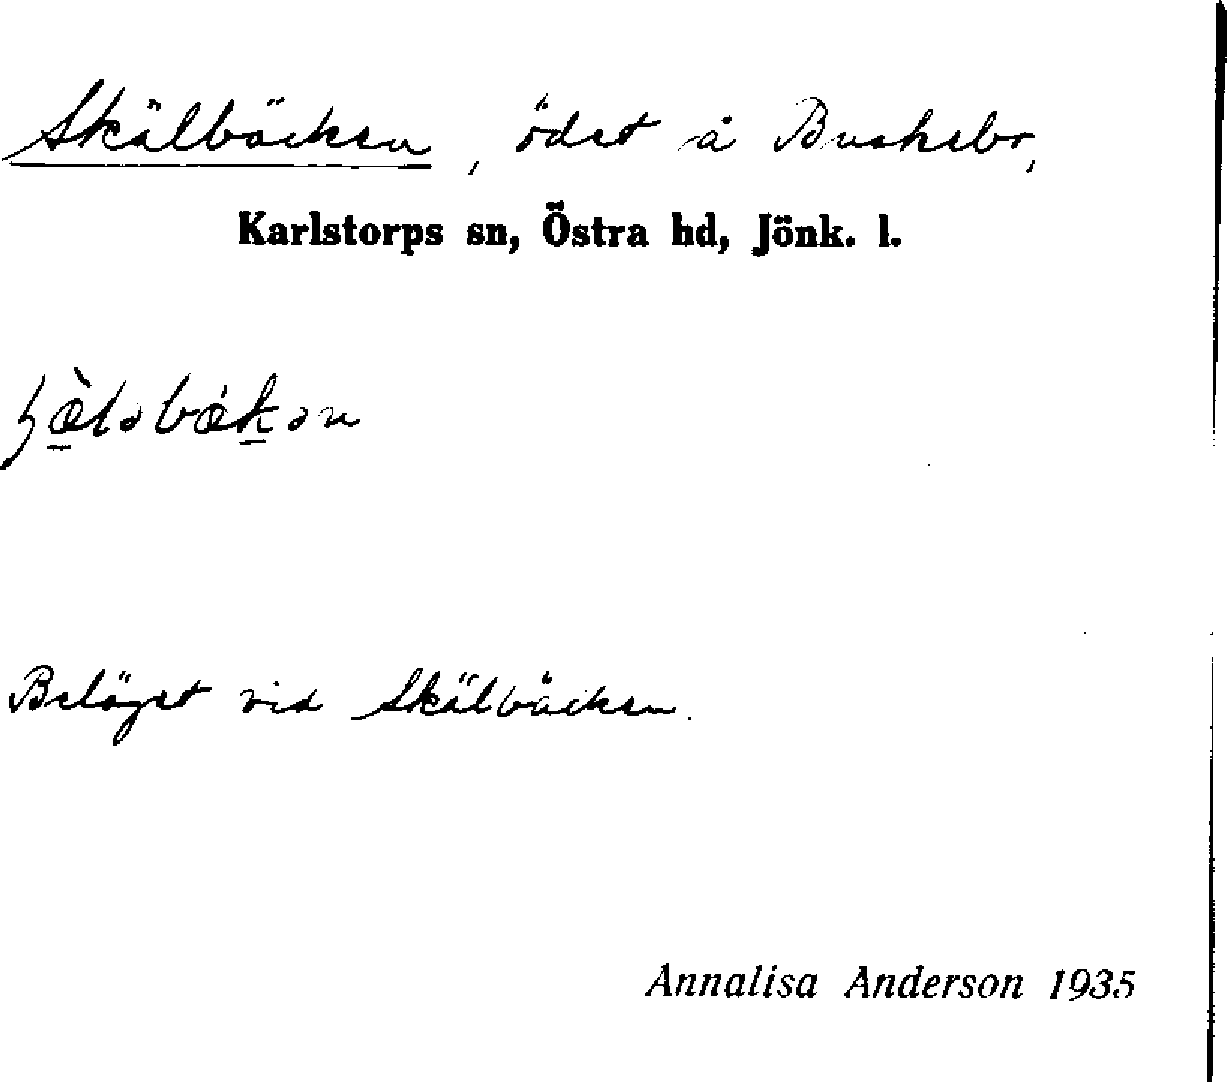 Skälbäcken, ödet å Buskebo,
Karlstorps sn, Östra hd, Jönk. l.
Beläget vid Skälbäcken.
Annalisa Anderson 1935